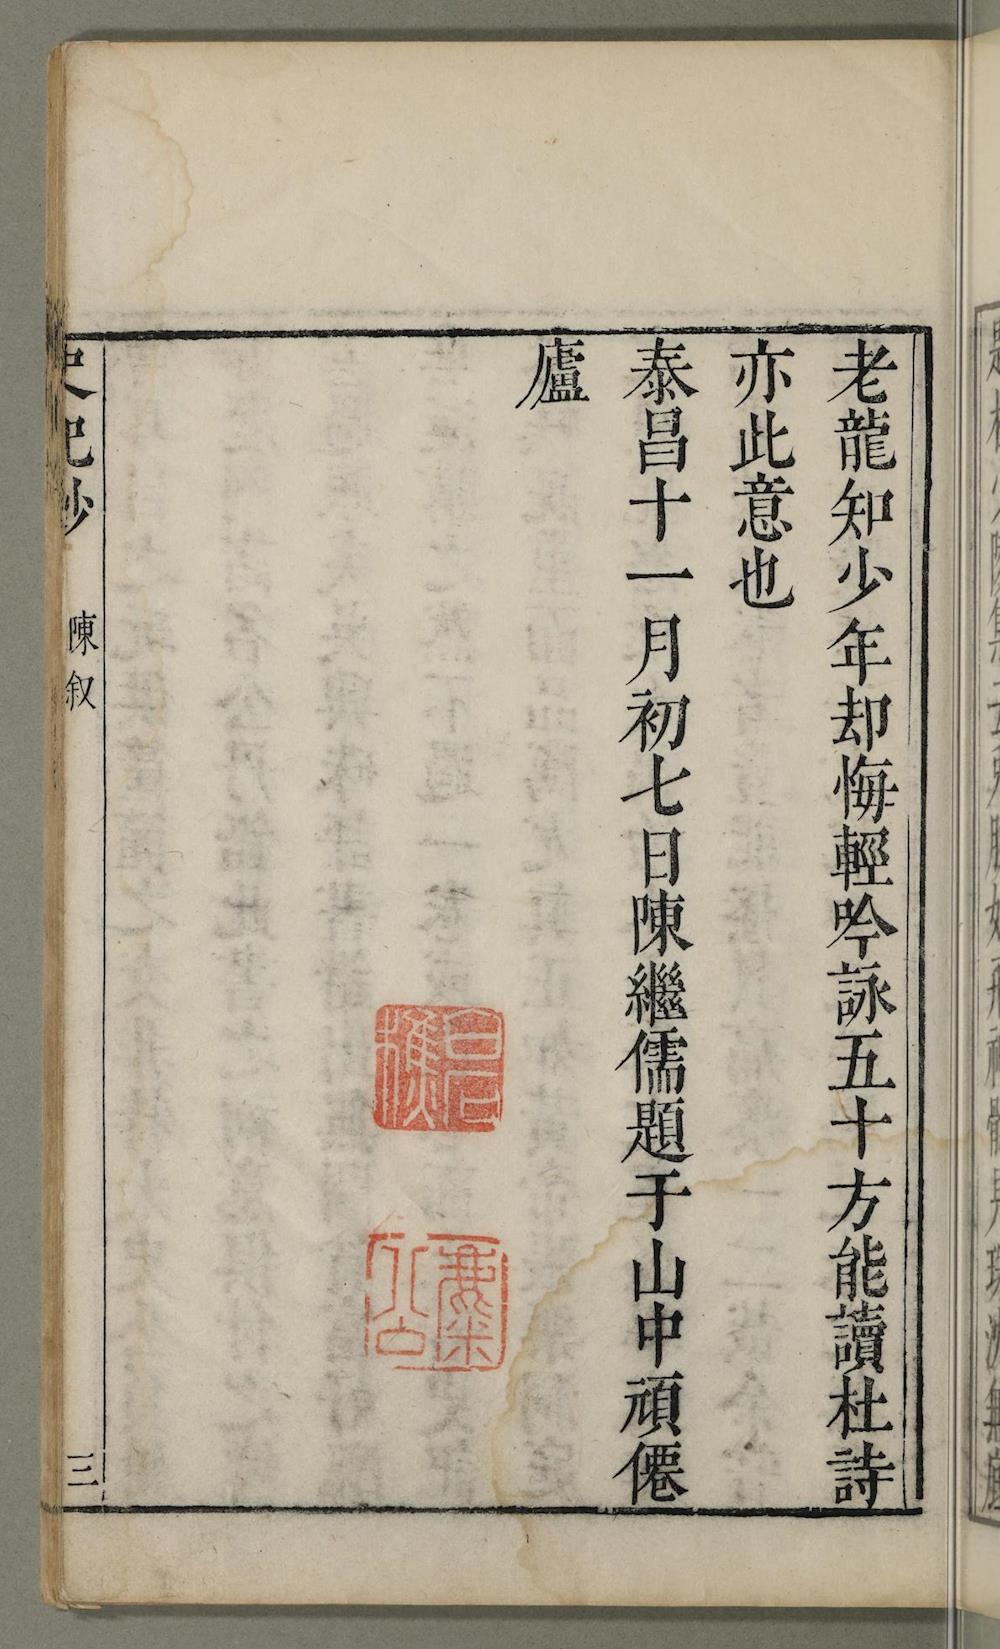 老龍知少年却悔輕吟詠五十方能讀杜詩
亦此意也
泰昌十一月初七日陳繼儒題于山中頑僊
廬
史記鈔
陳叙
三